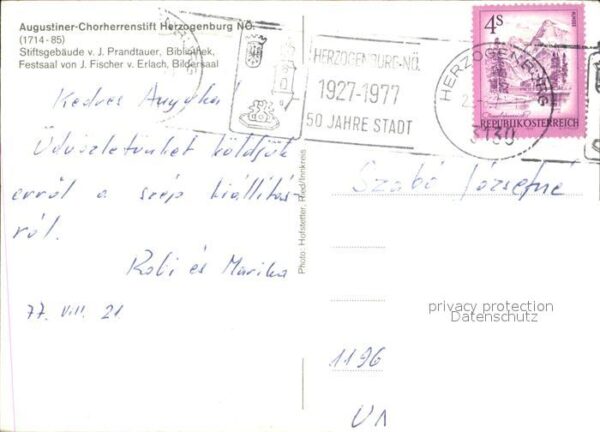 Augustiner-Chorherrenstift Herzogenburg NÖ.
(1714-85)
Stiftsgebäude v. J. Prandtauer, Bibliothek,
Festsaal von J. Fischer v. Erlach, Bildersaal
Kedves Anyuka!
Üdvözletünket küldjük
erről a szép kiállítás-
ról.
Robi és Marika
77. VIII. 21
HERZOGENBURG-NÖ.
1927-1977
50 JAHRE STADT
HERZOGENBURG
3130
4S
REPUBLIK ÖSTERREICH
Photo: Hofstetter, Ried/Innkreis
Szabó Józsefné
privacy protection
Datenschutz
1196